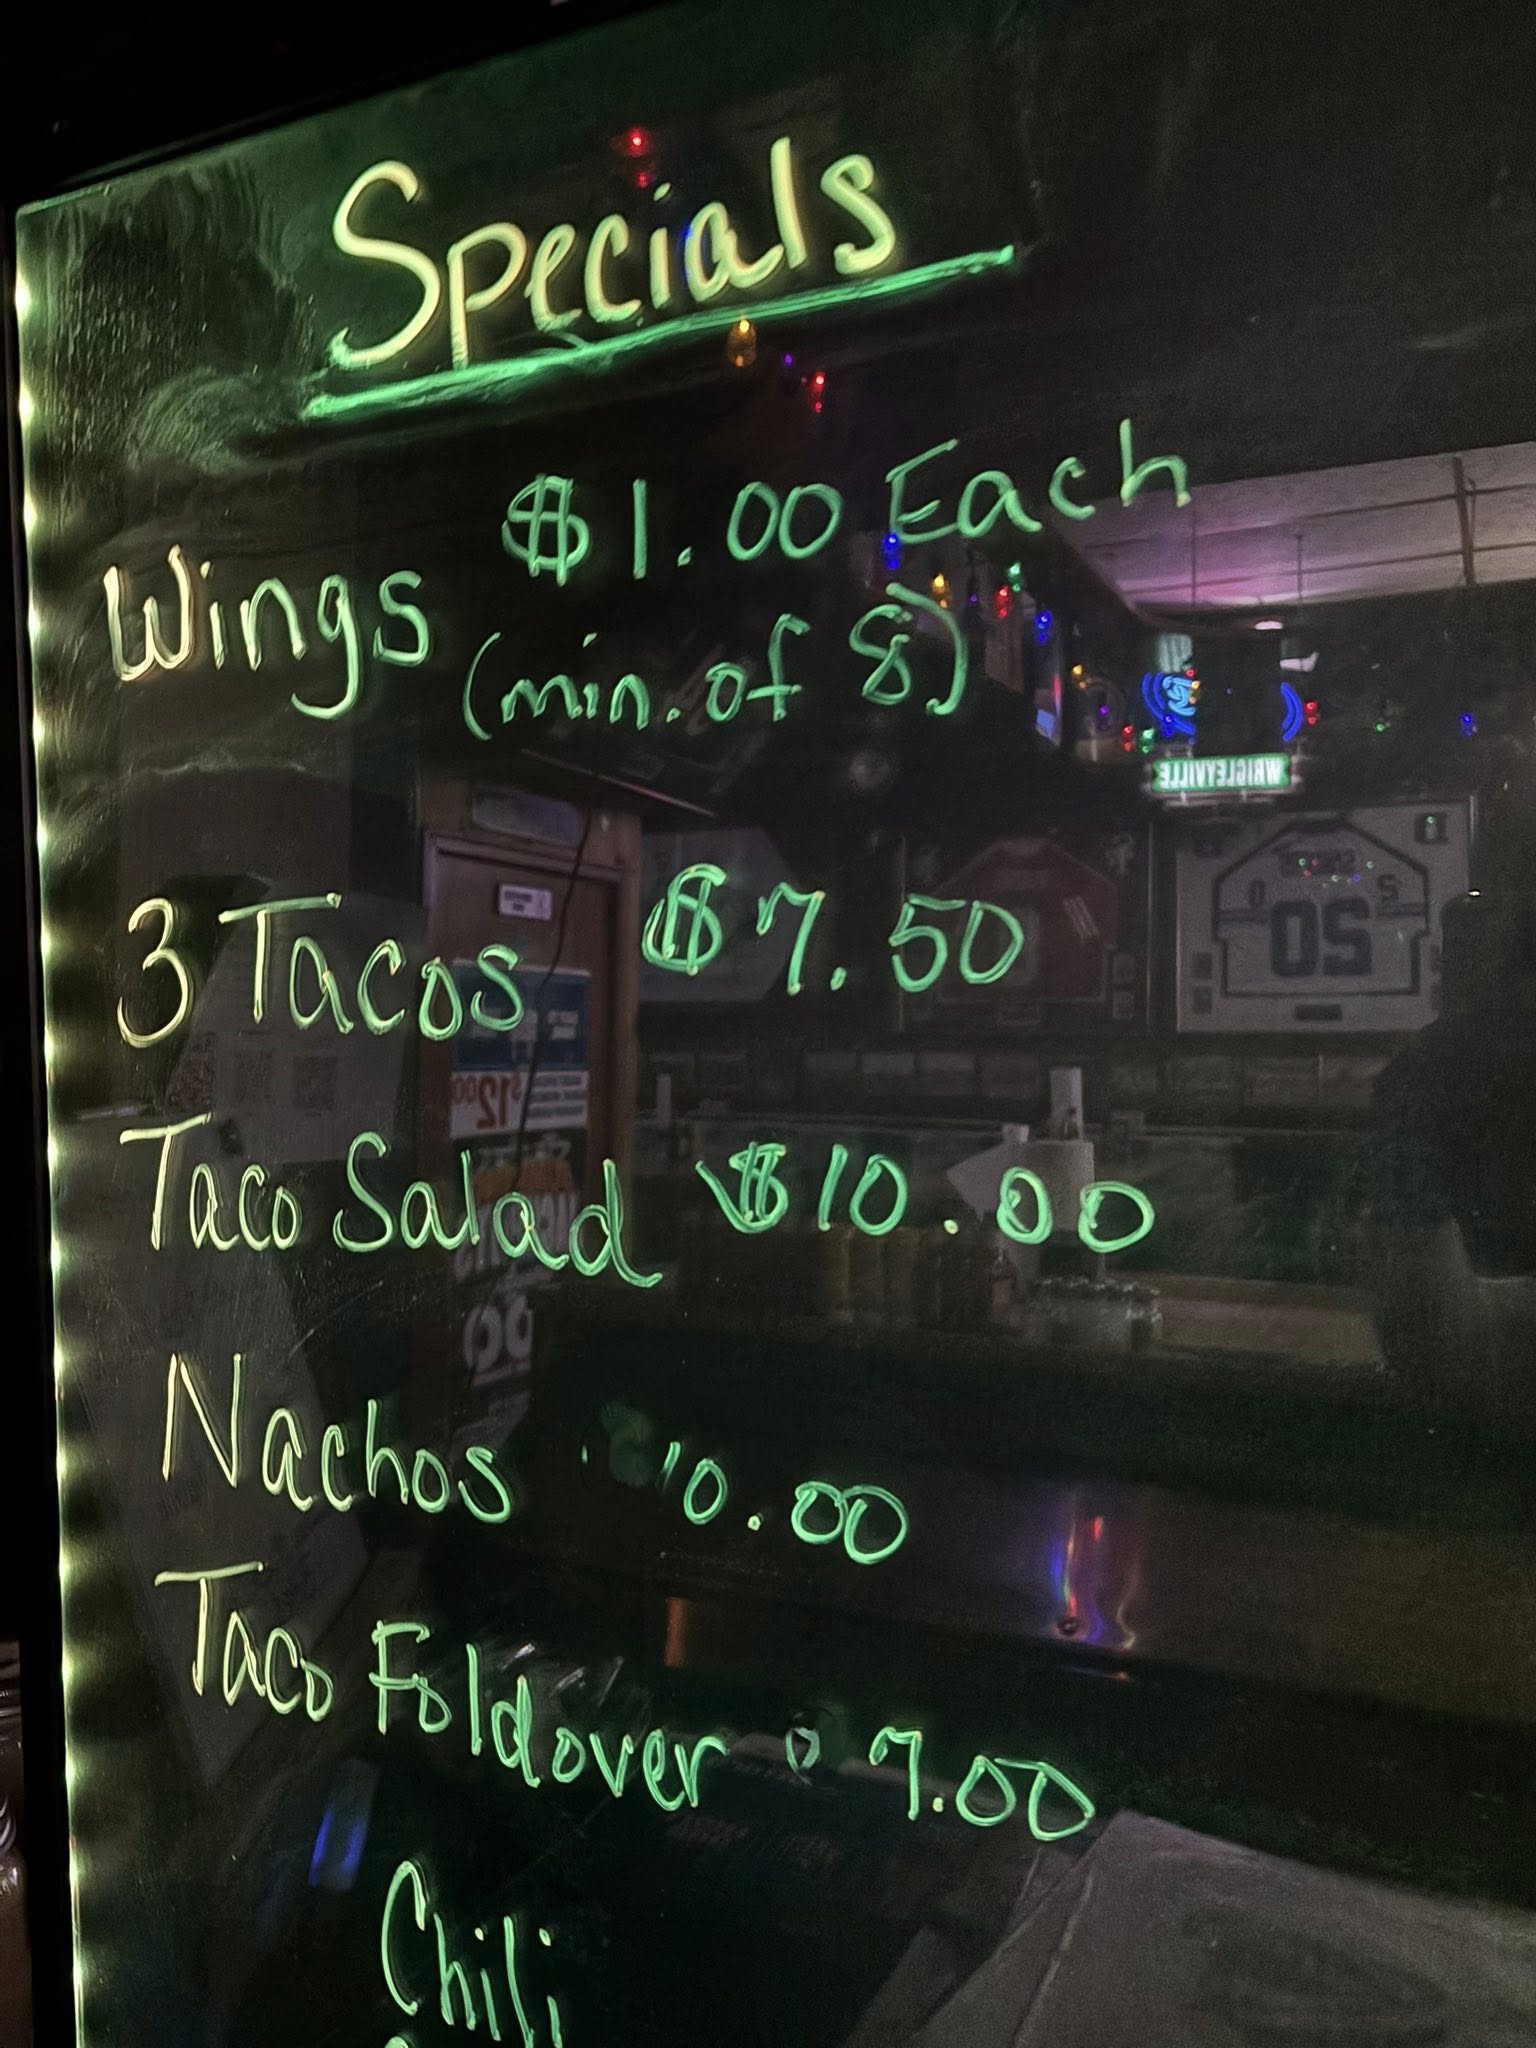 Specials
$1.00 Each
Wings (min. of 8)
3 Tacos $7.50
Taco Salad $10.00
Nachos 10.00
Taco Foldover 7.00
Chili
WRIGLEYVILLE
02
$12